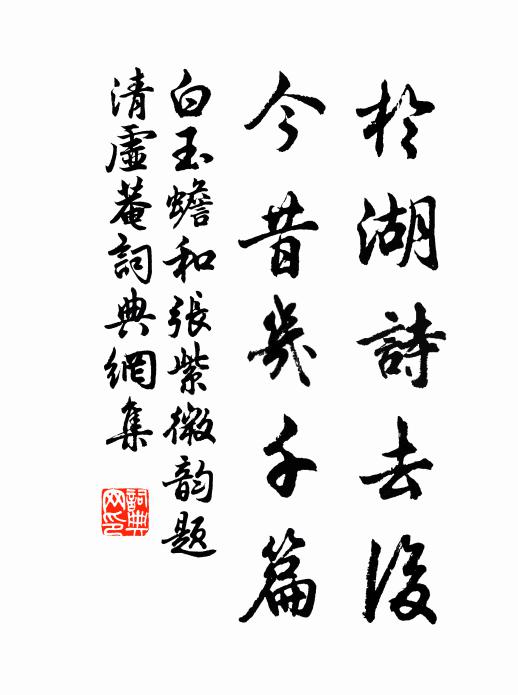 於湖詩去後
今昔幾千篇
白玉蟾和張紫微韵题
清虛菴詞典網集
詞典网印